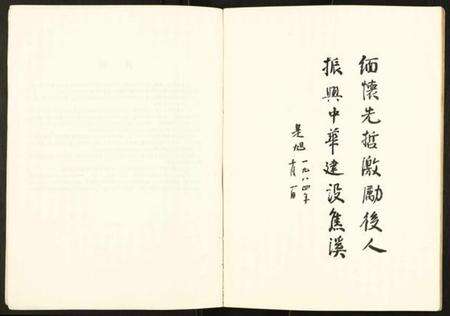 缅懷先哲激勵後人
振興中華建設焦溪
是旭
一九八四年
十月一日